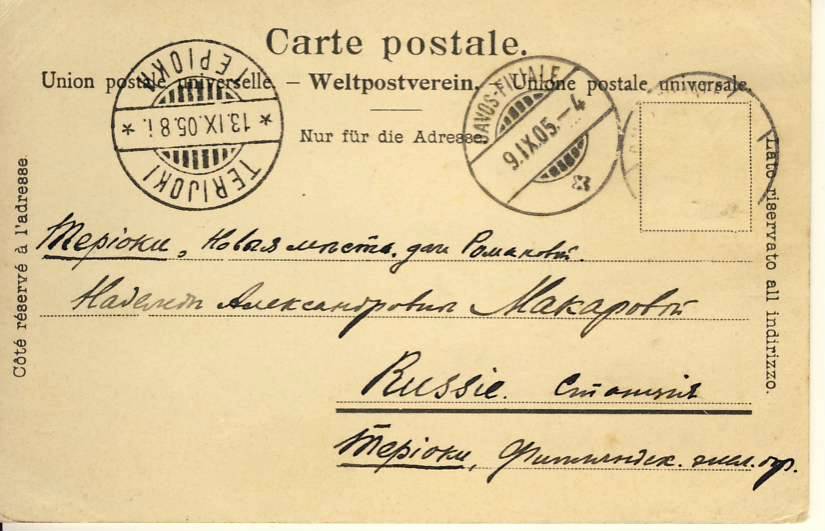 Carte postale.
Union postale universelle. – Weltpostverein. – Unione postale universale.
Nur für die Adresse
Côté réservé à l'adresse
Lato riservato all indirizzo.
ТЕРІОКИ
* 13.IX.05.8 i. *
TERIJOKI
DAVOS-FILIALE
9.IX.05.–4
Теріоки, Новыя мѣста. дача Романовой.
Надежды Александровны Макаровой
Russie. Станція
Теріоки, Финляндск. жел. дор.